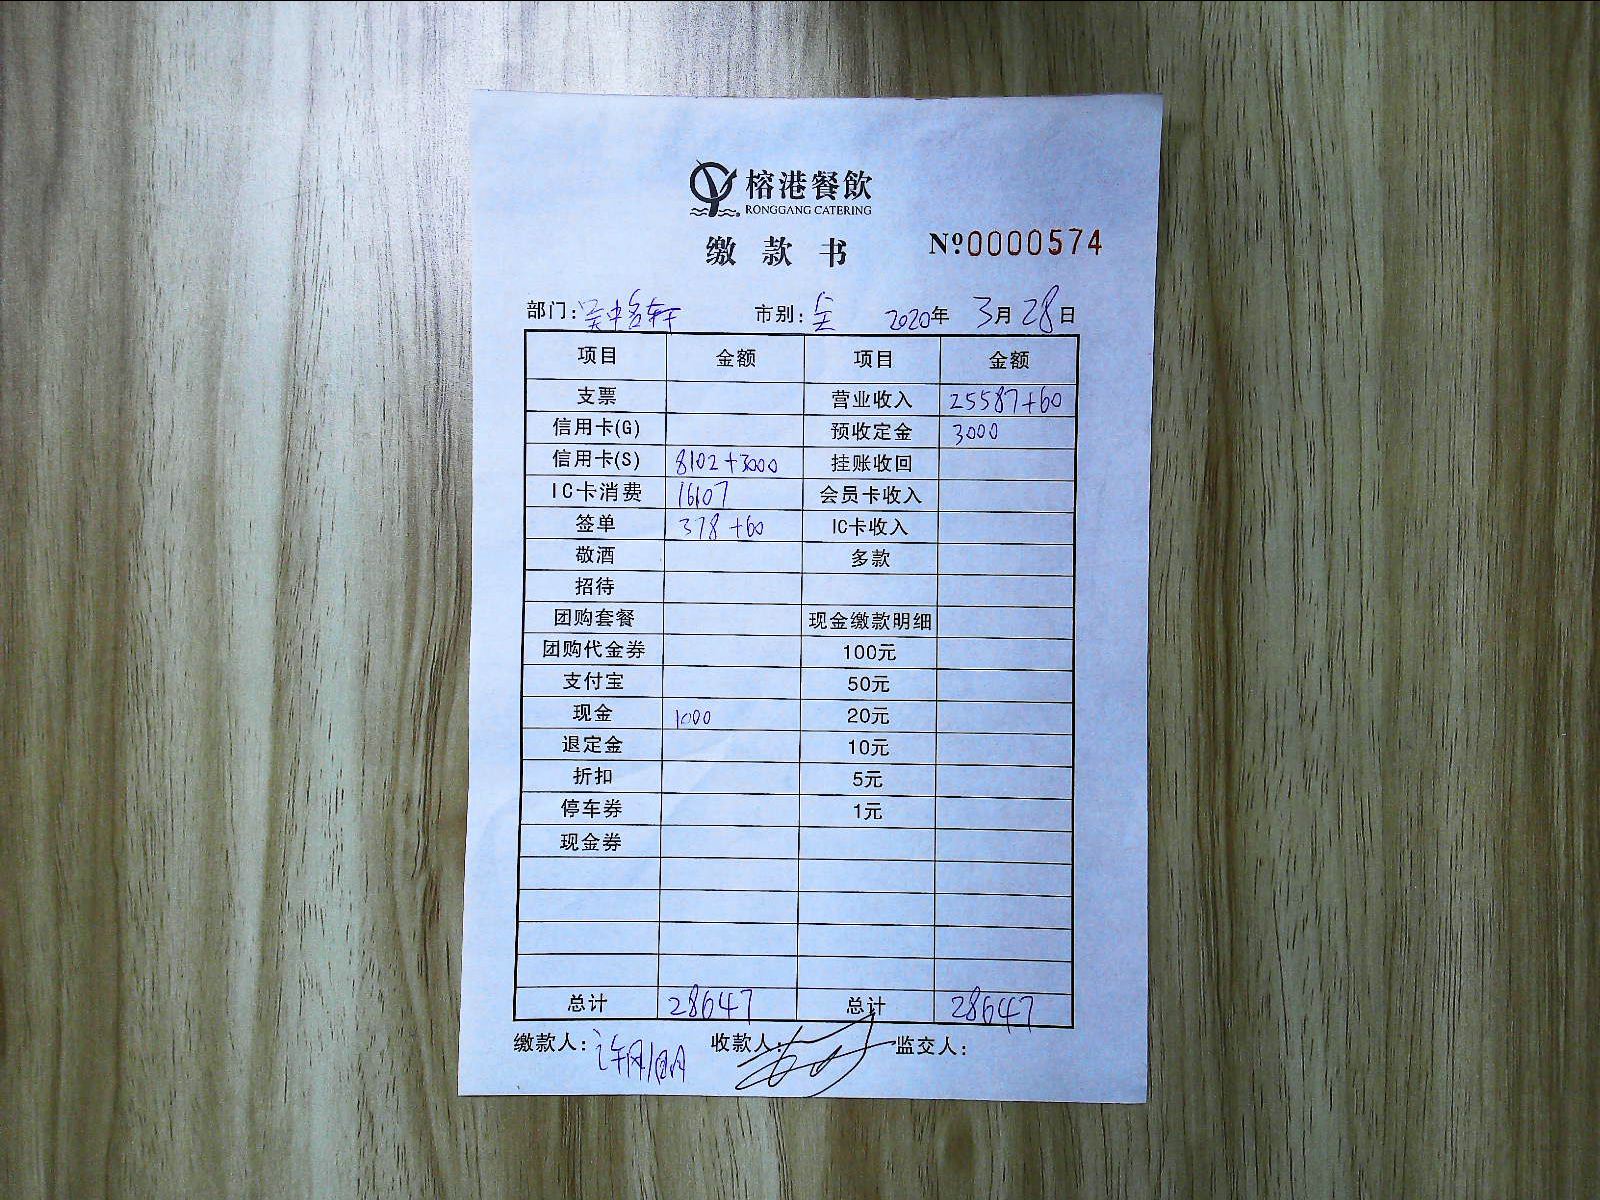 榕港餐飲
RONGGANG CATERING
缴款书 Nº0000574
部门: 吴中名轩 市别: 全 2020年 3月28日
项目 金额 项目 金额
支票 营业收入 25587+60
信用卡(G) 预收定金 3000
信用卡(S) 8102+3000 挂账收回
IC卡消费 16107 会员卡收入
签单 378+60 IC卡收入
敬酒 多款
招待
团购套餐 现金缴款明细
团购代金券 100元
支付宝 50元
现金 1000 20元
退定金 10元
折扣 5元
停车券 1元
现金券
总计 28647 总计 28647
缴款人: 收款人: 监交人: